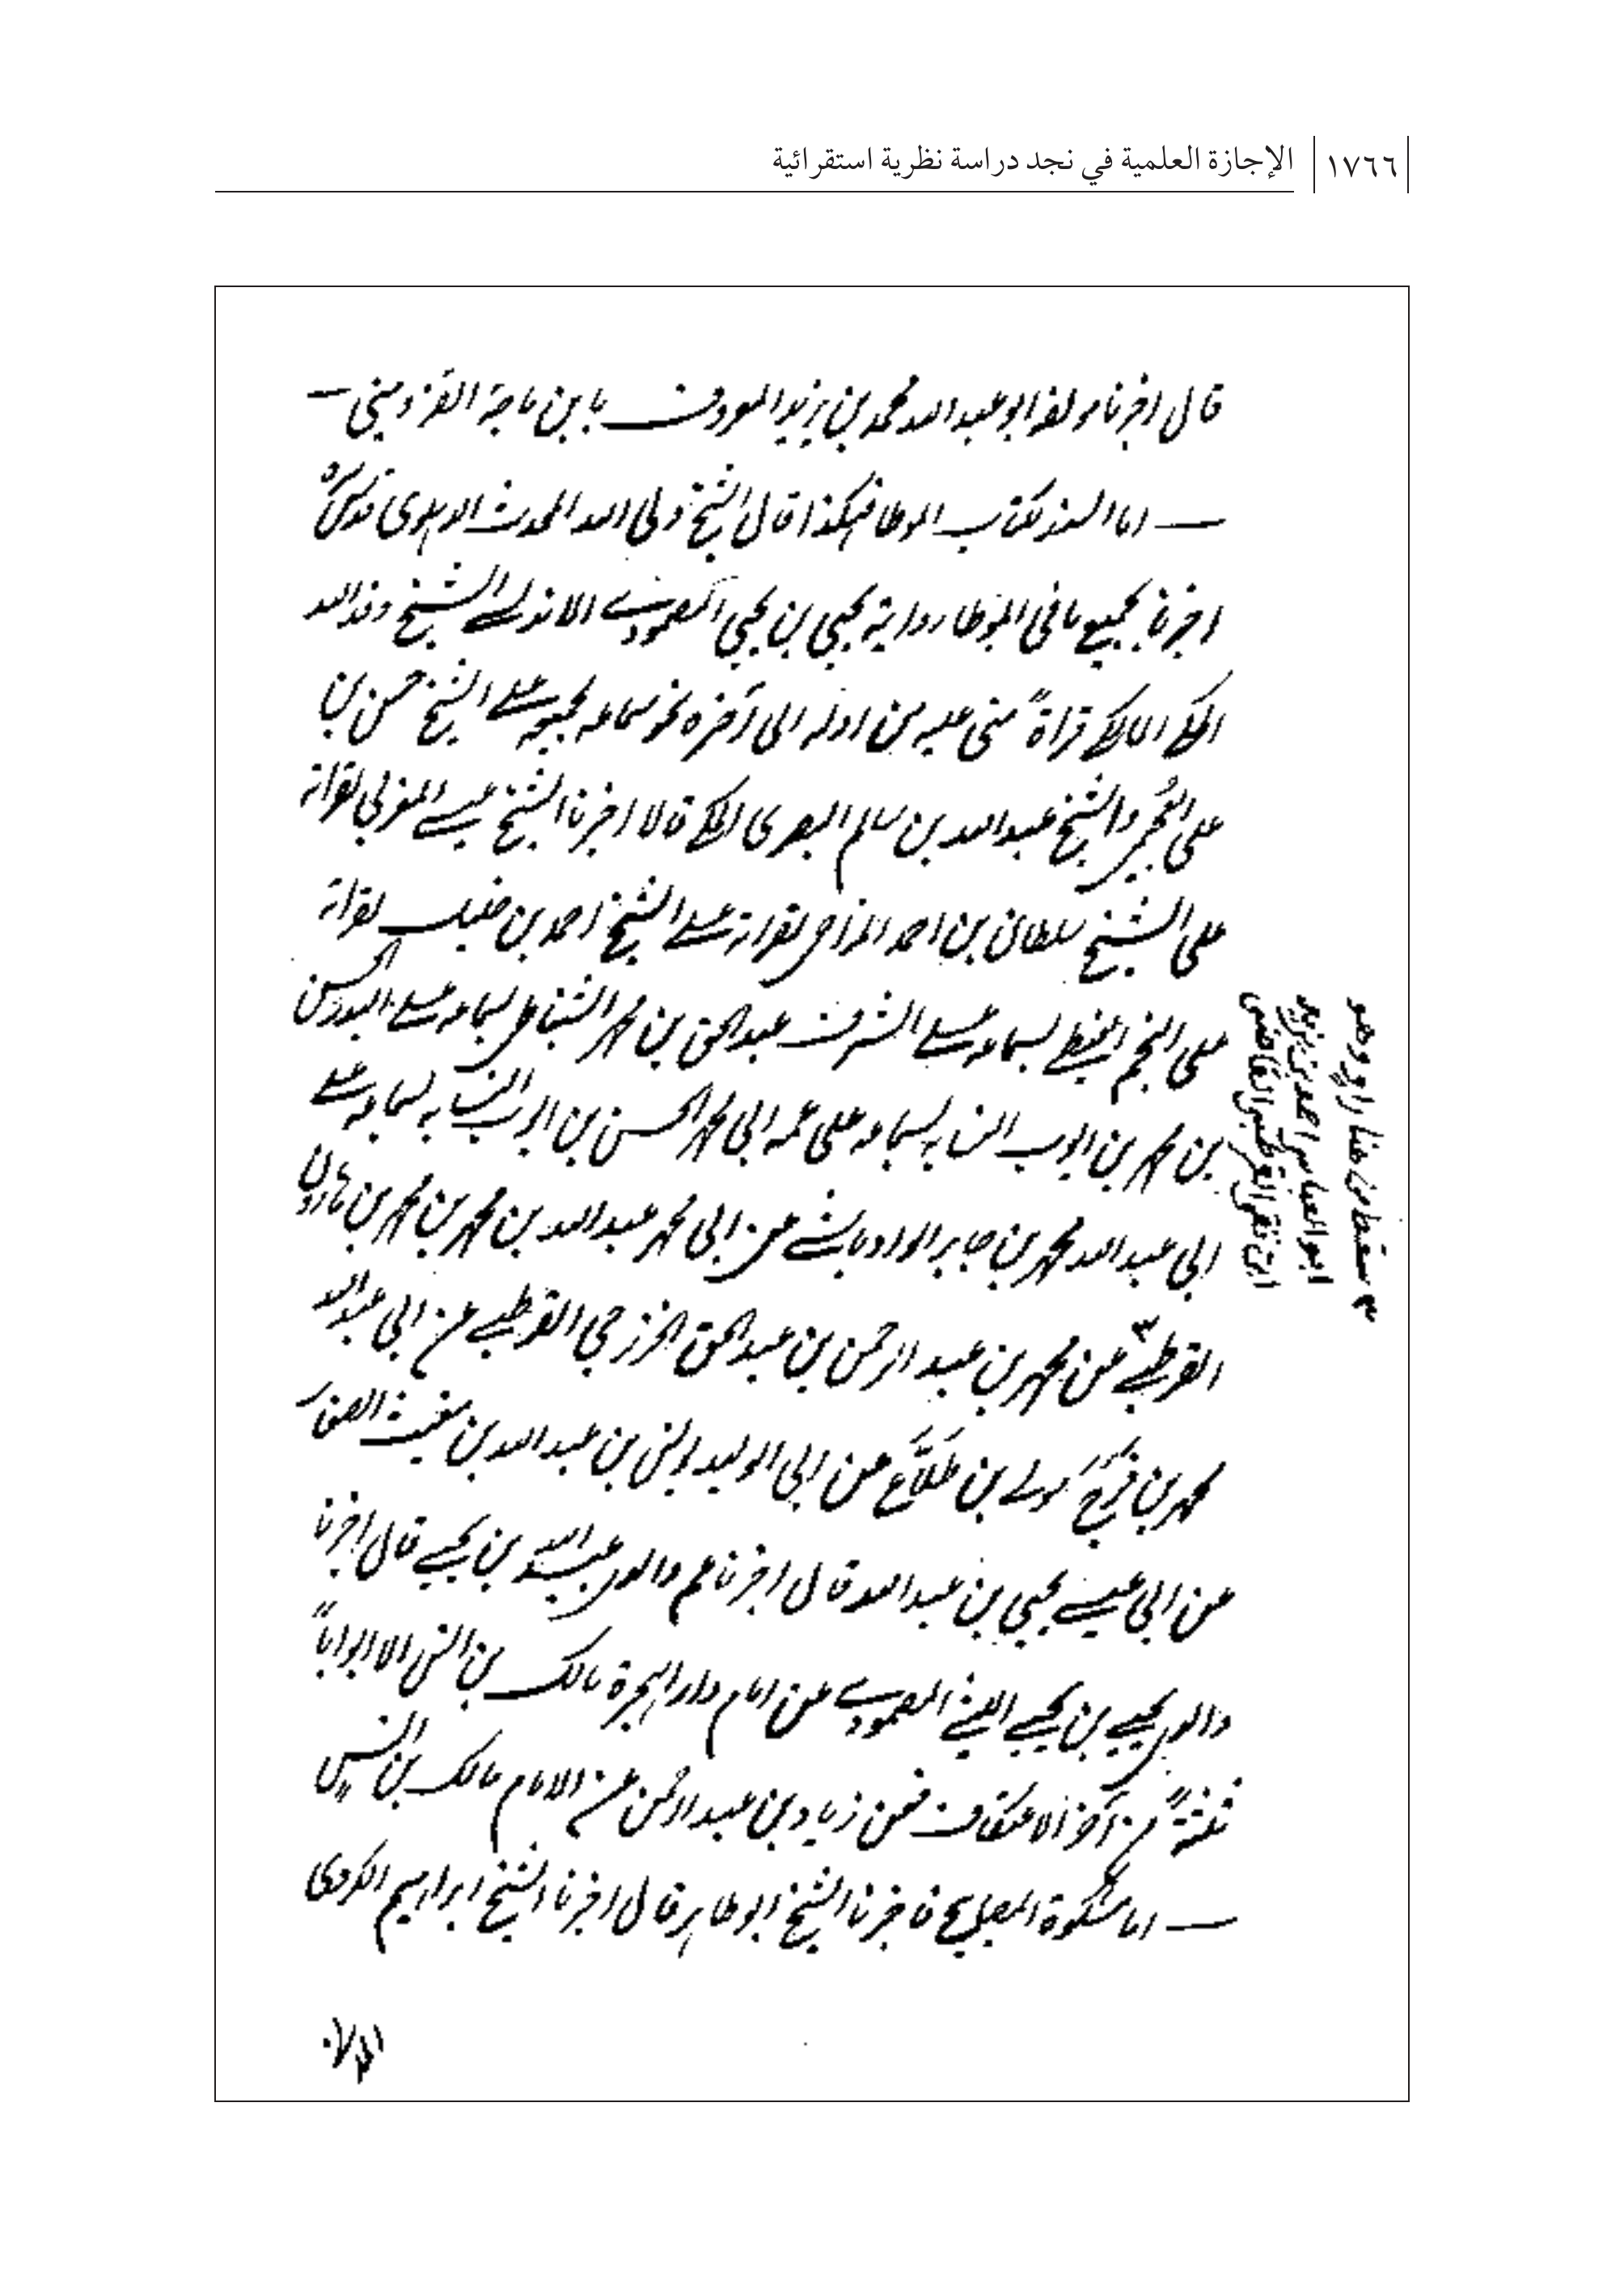 ١٧٦٦
الإجازة العلمية في نجد دراسة نظرية استقرائية
قال اخبرنا مولفه ابو عبد الله محمد بن يزيد المعروف بابن ماجة القزويني
اما السند لكتاب الموطا فهكذا قال الشيخ ولي الله المحدث الدهلوى قدس سره
اخبرنا بجميع ما في الموطا رواية يحيى بن يحيى المصمودي الاندلسي الشيخ وفد الله
المكي المالكي قراة مني عليه من اوله الى آخره بحق سماعه لجميعه على الشيخ حسن بن
على العجمي والشيخ عبد الله بن سالم البصرى المكي قالا اخبرنا الشيخ عيسى المغربي بقراته
على الشيخ سلطان بن احمد المزاحي بقراته على الشيخ احمد بن خليل بقراته
على النجم الغيطي بسماعه على الشرف عبد الحق بن محمد السنباطي بسماعه على البدر الحسن
بن محمد بن ايوب النسابه بسماعه على عمه ابي محمد الحسن بن ايوب النسابه بسماعه على
ابي عبد الله محمد بن جابر الوادياشي عن ابي محمد عبد الله بن محمد بن محمد بن هارون
القرطبي عن محمد بن عبد الرحمن بن عبد الحق الخزرجي القرطبي عن ابي عبد الله
محمد بن فرج مولى بن طلاع عن ابي الوليد يونس بن عبد الله بن مغيث الصفار
عن ابي عيسى يحيى بن عبد الله قال اخبرنا عم والدي عبيد الله بن يحيى قال اخبرنا
والدي يحيى بن يحيى الليثي المصمودي عن امام دار الهجرة مالك بن انس الا ابوابا
ثلثة من آخر الاعتكاف فعن زياد بن عبد الرحمن عن الامام مالك بن انس
اما مشكوة المصابيح فاخبرنا الشيخ ابو طاهر قال اخبرنا الشيخ ابراهيم الكردى
سقط من هنا راو وهو
ابو العباس احمد بن يزيد
ابن بقي القرطبي القاضي